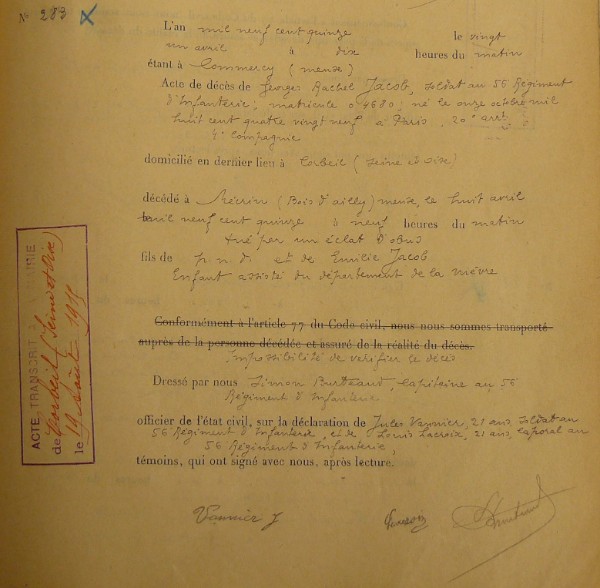 N° 283
L'an mil neuf cent quinze le vingt
un avril à dix heures du matin
étant à Commercy (meuse)
Acte de décès de Georges Rachel Jacob, soldat au 56 Régiment
d'Infanterie, matricule 04680; né le onze octobre mil
huit cent quatre vingt neuf à Paris, 20e arrt
4e Compagnie
domicilié en dernier lieu à Corbeil (Seine et Oise)
décédé à Mécrin (Bois d'ailly) meuse, le huit avril
mil neuf cent quinze à neuf heures du matin
tué par un éclat d'obus
fils de p.n.d. et de Emilie Jacob
Enfant assisté du département de la nièvre
Conformément à l'article 77 du Code civil, nous nous sommes transporté
auprès de la personne décédée et assuré de la réalité du décès.
Impossibilité de vérifier le décès
Dressé par nous Simon Capitaine au 56
Régiment d'Infanterie
officier de l'état civil, sur la déclaration de Jules Vannier, 21 ans, soldat au
56 Régiment d'Infanterie, et de Louis Lacroix, 21 ans, Caporal au
56 Régiment d'Infanterie,
témoins, qui ont signé avec nous, après lecture.
Vannier J
ACTE TRANSCRIT À LA MAIRIE
de Corbeil (Seine et Oise)
le 19 Août 1915